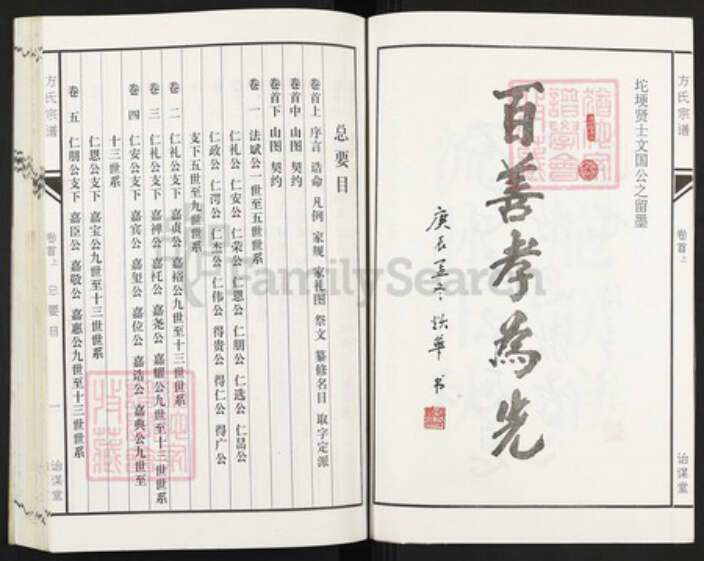 方氏宗谱
卷首上
诒谋堂
坨埂贤士文国公之留墨
百善孝為先
庚辰孟冬
华书
总要目
卷首上 序言 诰命 凡例 家规 家礼图 祭文 纂修名目 取字定派
卷首中 山图 契约
卷首下 山图 契约
卷一 法斌公一世至五世世系
仁礼公 仁安公 仁荣公 仁恩公 仁朋公 仁选公 仁昌公
仁政公 仁湾公 仁杰公 仁伟公 得贵公 得仁公 得广公
支下五世至九世世系
卷二 仁礼公支下 嘉贞公 嘉裕公九世至十三世世系
卷三 仁礼公支下 嘉禅公 嘉祍公 嘉尧公 嘉耀公九世至十三世世系
卷四 仁安公支下 嘉宾公 嘉玺公 嘉位公 嘉诰公 嘉典公九世至
十三世系
仁恩公支下 嘉宝公九世至十三世世系
卷五 仁朋公支下 嘉臣公 嘉敬公 嘉惠公九世至十三世世系
方氏宗谱
卷首上 总要目
一
诒谋堂
FamilySearch